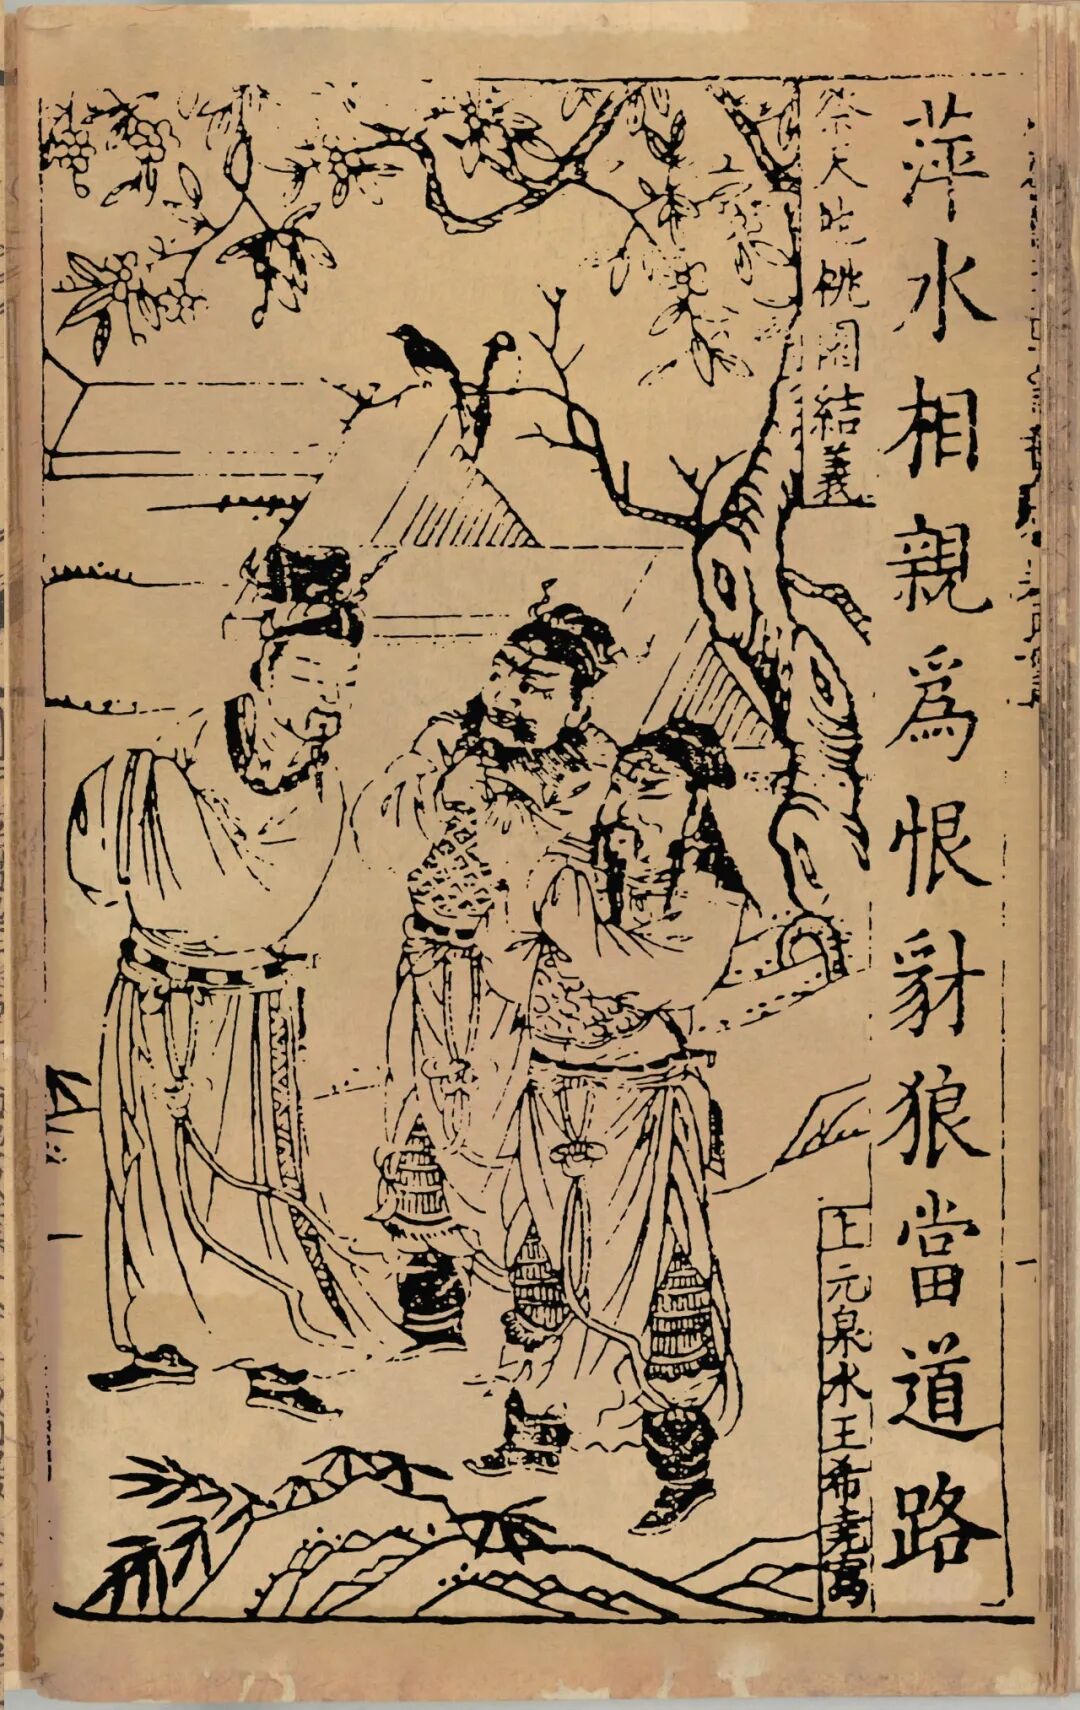 萍水相親爲恨豺狼當道路
祭天地桃園結義
上元泉水王希堯寫